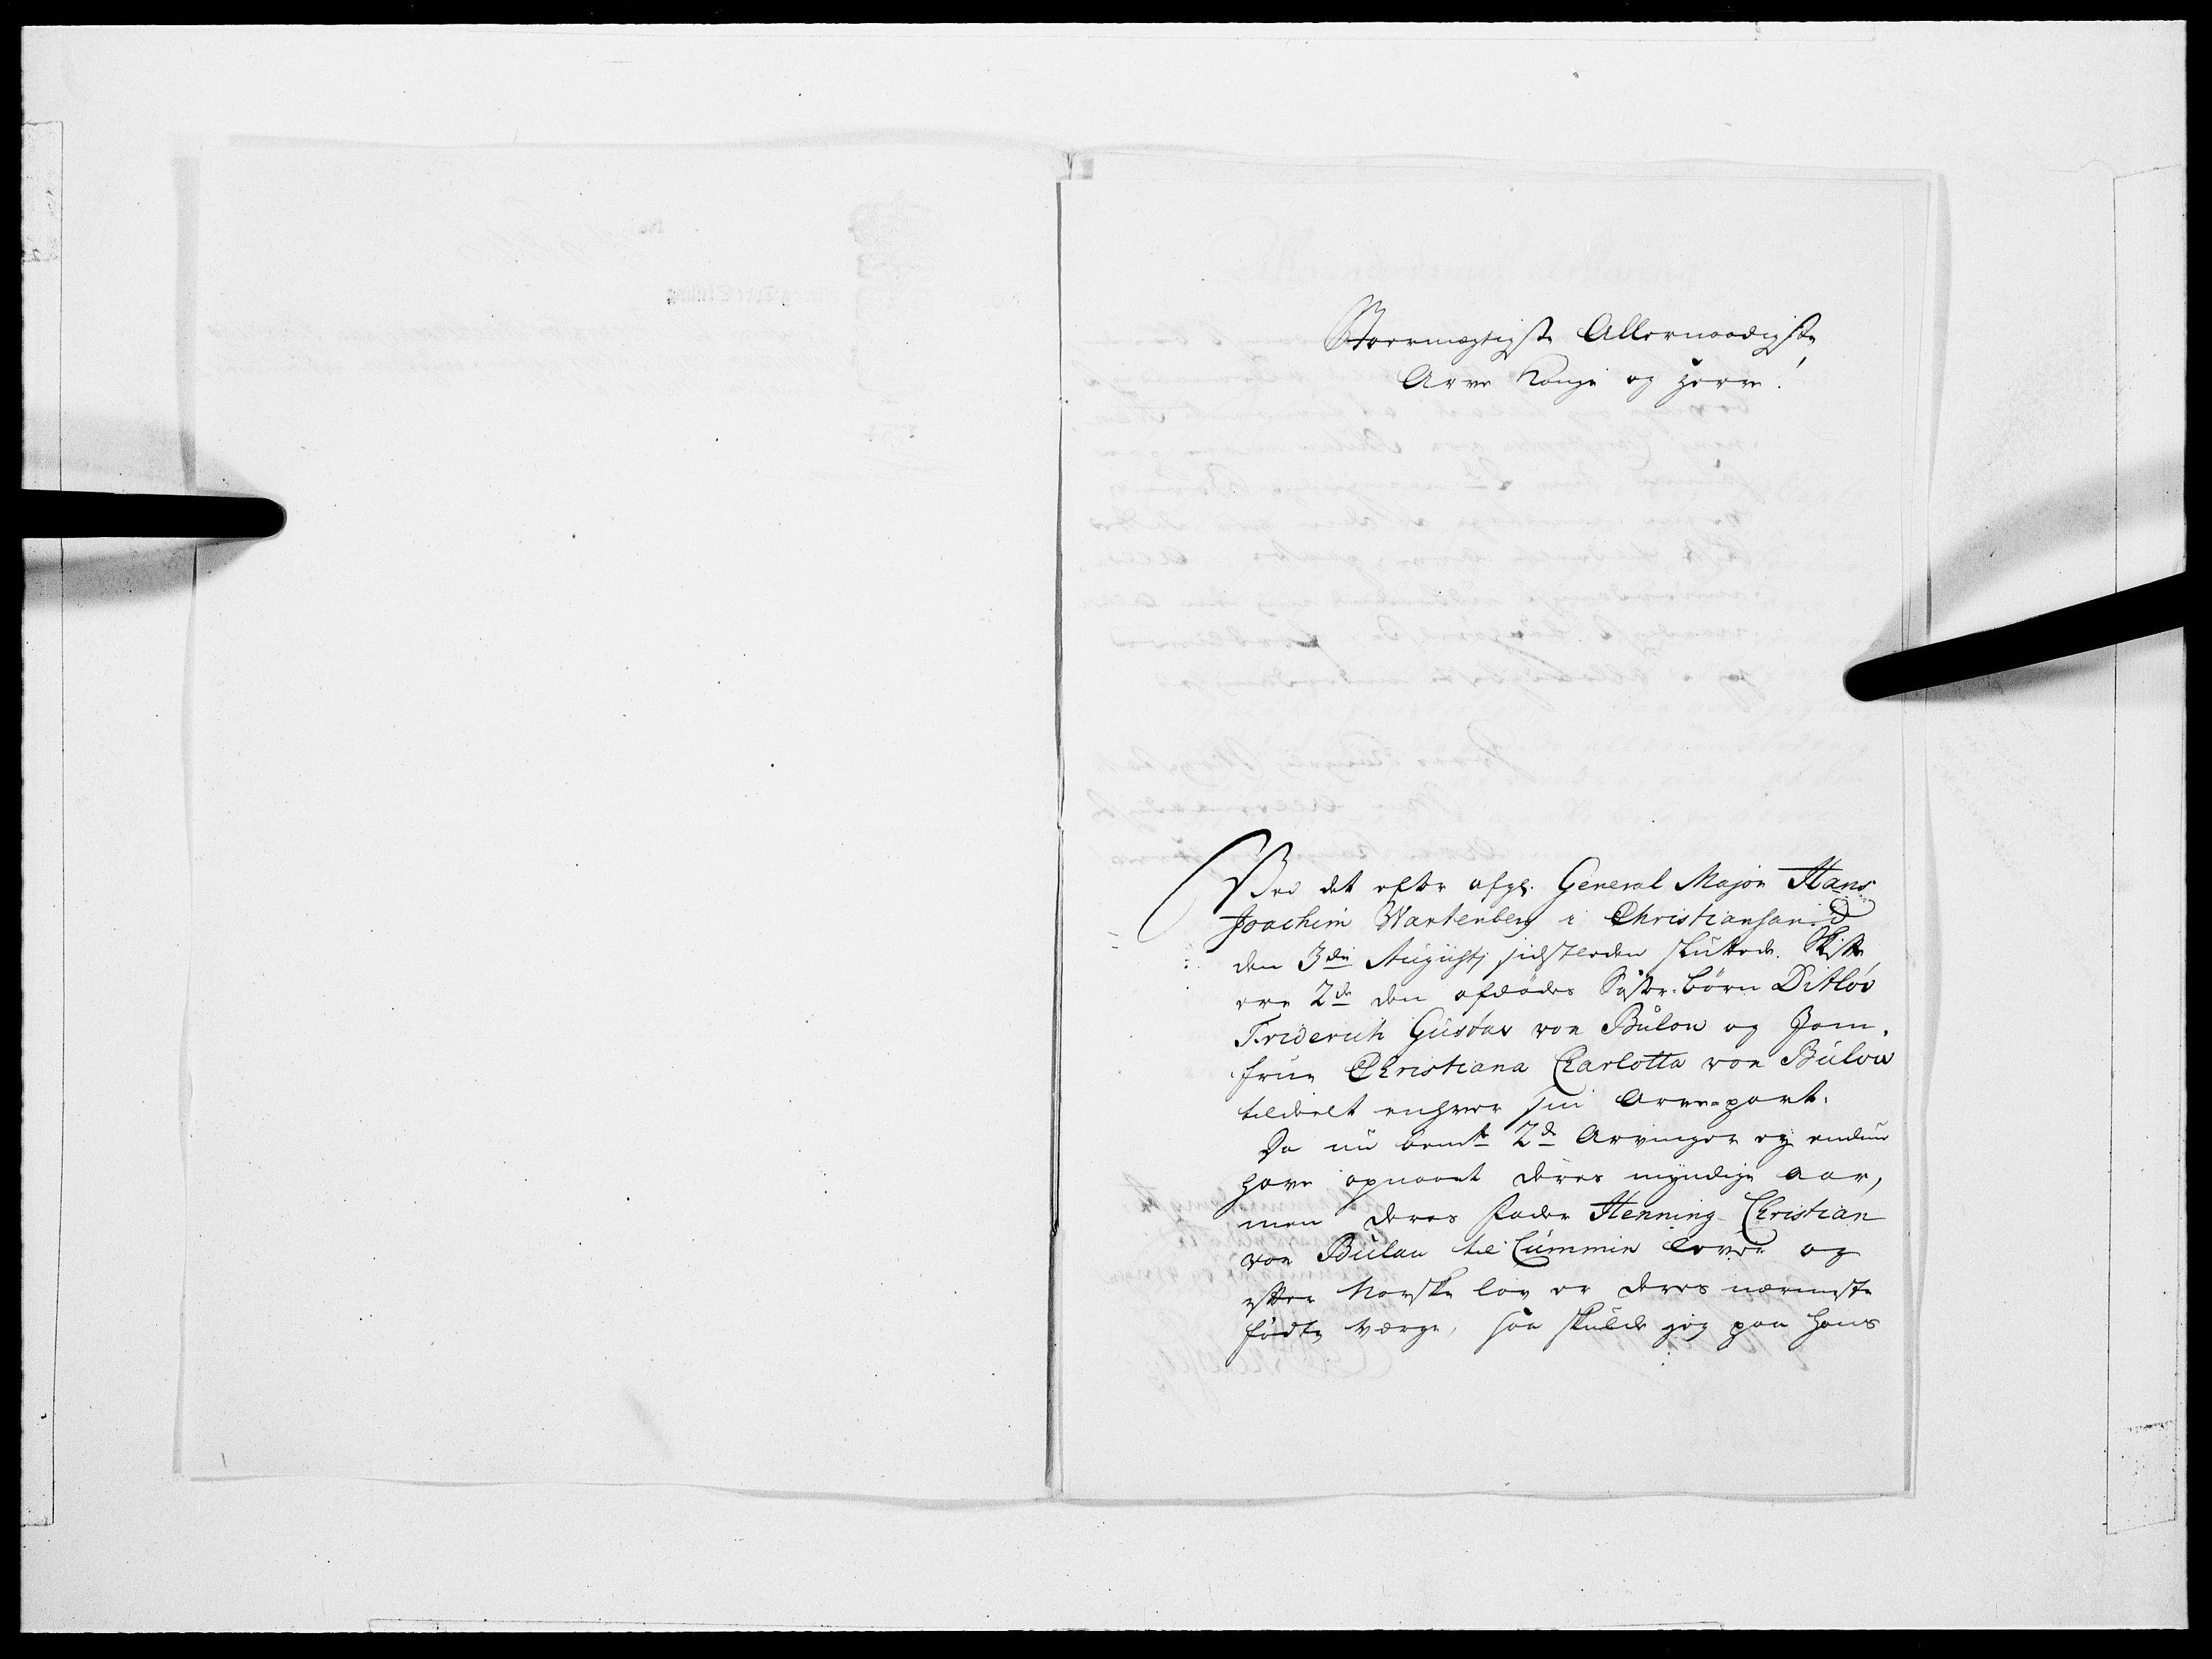 Stoermægtigste Allernaadigste
Arve Konge og Herre!
Ved det efter afgl. General Major Hans
Joachim Wartenberg i Christiansand
den 3die Augusti sidstleden sluttede Skifte
ere 2de den afdødes Søster-børn Ditløv
Friderich Gustav von Bülow og Jom-
frue Christiana Charlotta von Bülow
tildeelt enhver sin Arve-part.
Da nu bemte 2de Arvinger ey endnu
have opnaaet deres myndige Aar,
men deres Fader Henning Christian
von Bülau til Cummin lever og
efter Norske lov er deres nærmeste
fødte Værge, saa skulde jeg paa hans